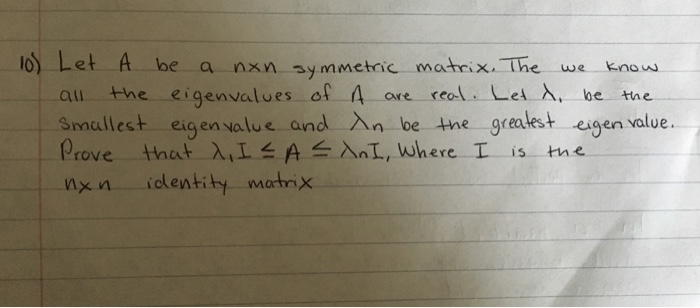 10) Let A be a nxn symmetric matrix. The we know
all the eigenvalues of A are real. Let λ₁ be the
smallest eigenvalue and λn be the greatest eigenvalue.
Prove that λ₁I ≤ A ≤ λnI, Where I is the
nxn identity matrix